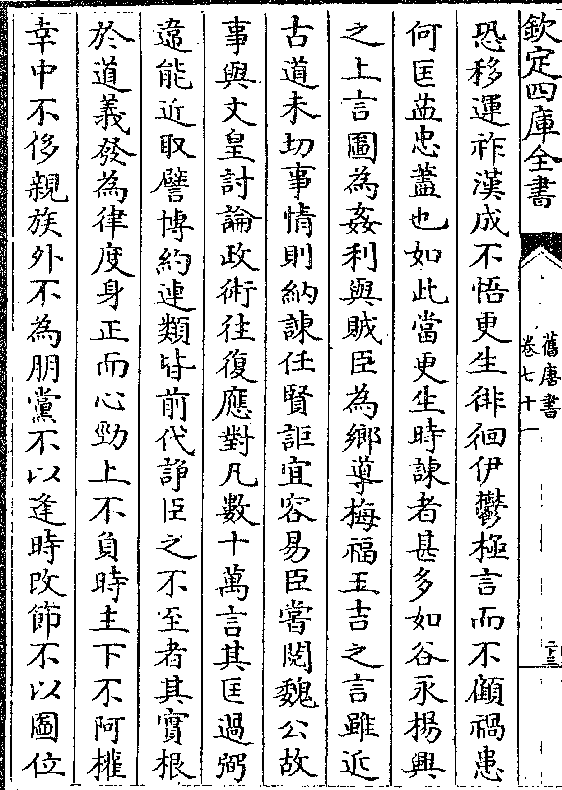 欽定四庫全書
舊唐書
卷七十一
二十三
恐移運祚漢成不悟更生徘徊伊鬱極言而不顧禍患
何匡益忠藎也如此當更生時諫者甚多如谷永楊興
之上言圖為姦利與賊臣為鄉導梅福王吉之言雖近
古道未切事情則納諫任賢詎宜容易臣嘗閱魏公故
事與文皇討論政術往復應對凡數十萬言其匡過弼
違能近取譬博約連類皆前代諍臣之不至者其實根
於道義發為律度身正而心勁上不負時主下不阿權
幸中不侈親族外不為朋黨不以逢時改節不以圖位